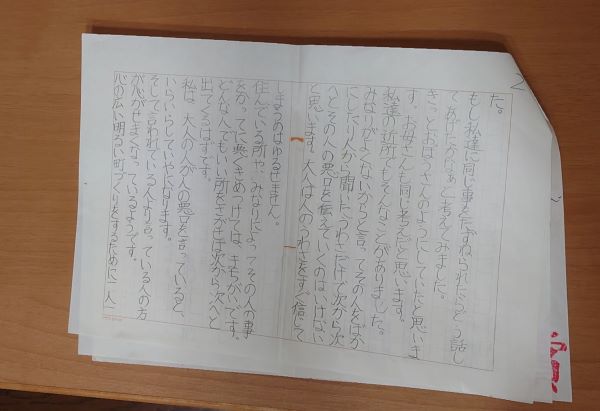 2
た。
もし私達に同じ事をたずねられたらどう話し
てあげたかなあと考えてみました。
きっとおばあさんのようにしていたと思いま
す。お母さんも同じ考えだと思います。
私達の近所でもそんなことがありました。
みなりがよくないからと言ってその人をばか
にしたり人から聞いたうわさだけで次から次
へとその人の悪口を伝えていくのはいけない
と思います。大人は人のうわさをすぐ信じて
しまうのはゆるせません。
住んでいる所や、みなりによってその人の事
をかってに悪くきめつけては、まちがいです。
どんな人でもいい所をさがせば次から次へと
出てくるはずです。
私は、大人の人が人の悪口を言っていると、
いらいらしていやになります。
そして言われている人より言っている人の方
が心がせまくなっているようです。
心の広い明るい町づくりをするために一人一